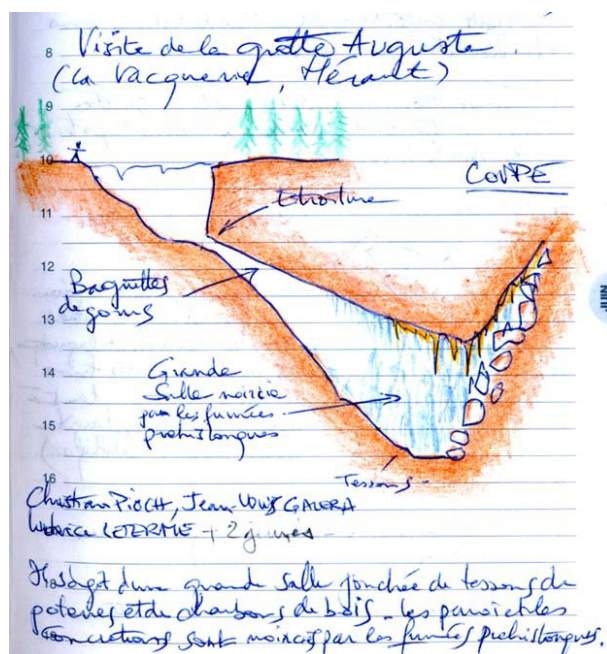 8 Visite de la grotte Auguste.
(La Vacquerie, Hérault)
9
10
COUPE
Etroiture
11
12
Baguettes
de gours
13
Grande
14
Salle noircie
par les fumées
15
préhistoriques
Tessons
16
Christian PIOCH, Jean-Louis GALERA
LETERME + 2 jeunes
Il s'agit d'une grande salle jonchée de tessons de
poteries et de charbons de bois. Les parois et les
concrétions sont noircies par les fumées préhistoriques.